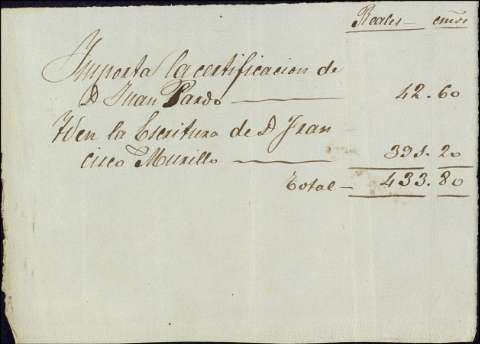 Reales cmos
Importa la certificacion de
D Juan Pardo 42.60
Yden la Escritura de D Fran
cisco Murillo 391.20
Total 433.80